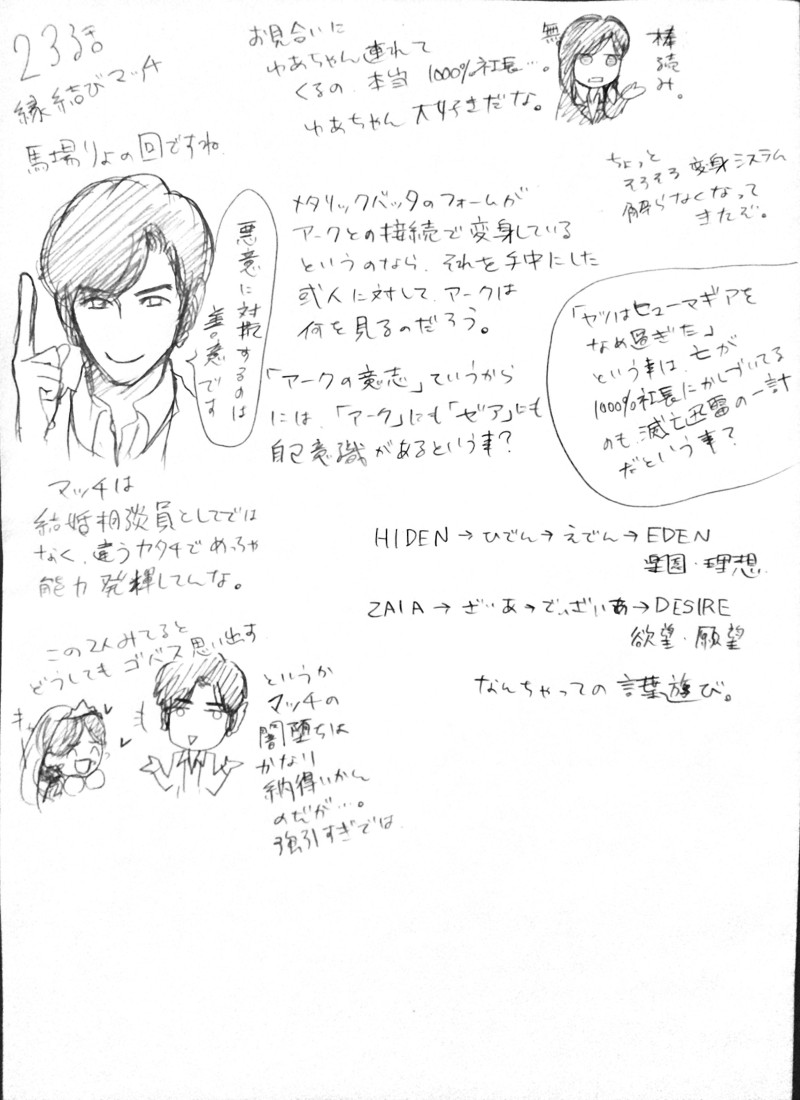 23るき
縁結びマッチ
馬場りょの回ですね。
お見合いに
ゆあちゃん連れて
くるの、本当1000%社長…。
ゆあちゃん大好きだな。
無。
棒読み。
ちょっと
そろそろ変身システム
解らなくなって
きたぞ。
悪意に対抗するのは
善意です
メタリックバッタのフォームが
アークとの接続で変身している
というのなら、それを手中にした
或人に対して、アークは
何を見るのだろう。
「アークの意志」ていうから
には、「アーク」にも「ゼア」にも
自己意識があるという事?
「ヤツはヒューマギアを
なめ過ぎた」
という事は、亡が
1000%社長にかしづいてる
のも、滅亡迅雷の一計
だという事?
マッチは
結婚相談員としてでは
なく、違うカタチでめっちゃ
能力発揮してんな。
HIDEN→ひでん→えでん→EDEN
楽園・理想
ZAIA→ざいあ→でぃざいあ→DESIRE
欲望・願望
なんちゃっての言葉遊び。
この2人みてると
どうしてもゴバス思い出す
というか
マッチの
闇堕ちは
かなり
納得いかん
のだが…。
強引すぎでは